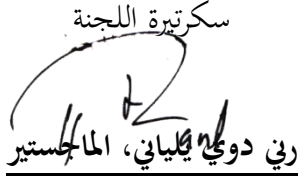 سكرتيرة اللجنة
رني دوي يلياني، الماجستير